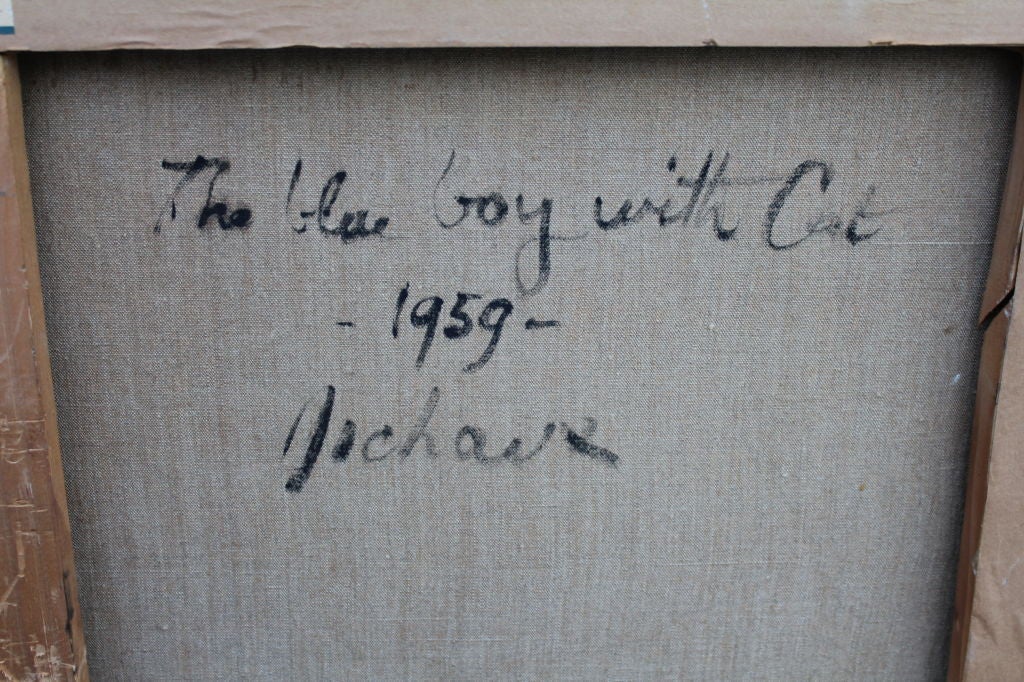 The blue boy with Cat
- 1959 -